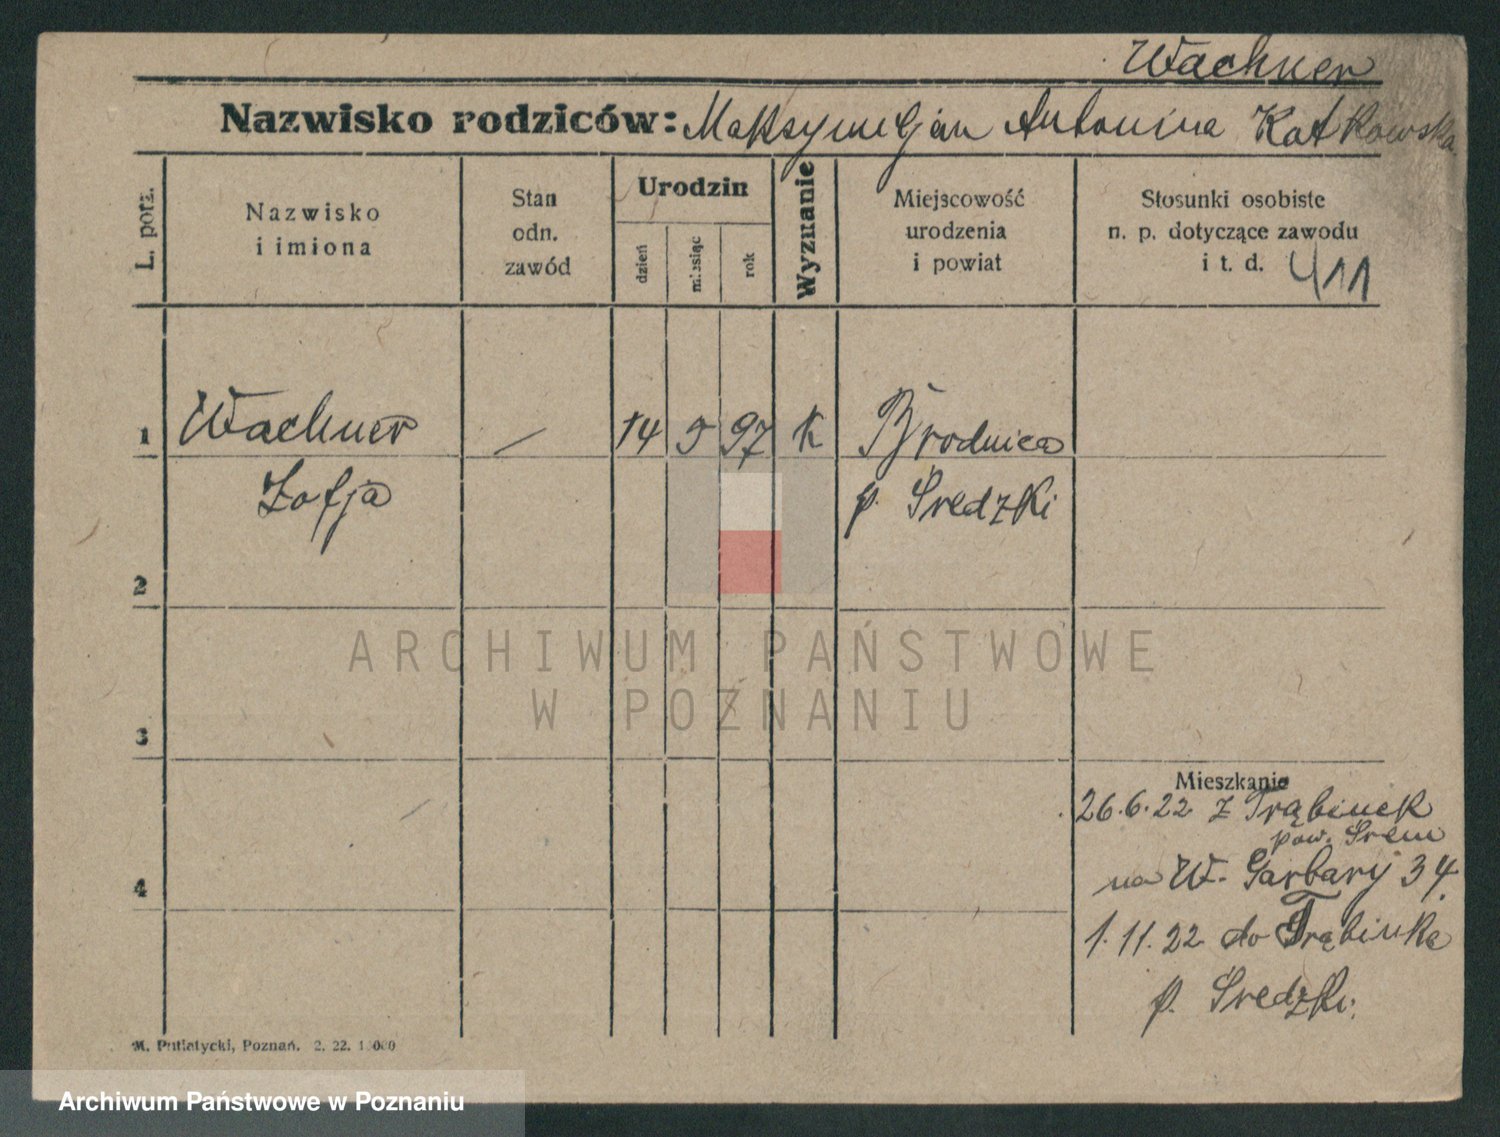 Wachner
Nazwisko rodziców: Maksymiljan Antonina Kotkowska
L. porz.
Nazwisko
i imiona
Stan
odn.
zawód
Urodzin
dzień
miesiąc
rok
Wyznanie
Miejscowość
urodzenia
i powiat
Stosunki osobiste
n. p. dotyczące zawodu
i t. d. 411
1 Wachner — 14 5 97 K Brodnica
Zofja p. Średzki
2
ARCHIWUM PAŃSTWOWE
W POZNANIU
3
Mieszkanie
26.6.22 z Trąbinek
pow. Śrem
na W. Garbary 34.
4
1.11.22 do Trąbinka
p. Średzki.
M. Putiatycki, Poznań. 2. 22. 1 000
Archiwum Państwowe w Poznaniu